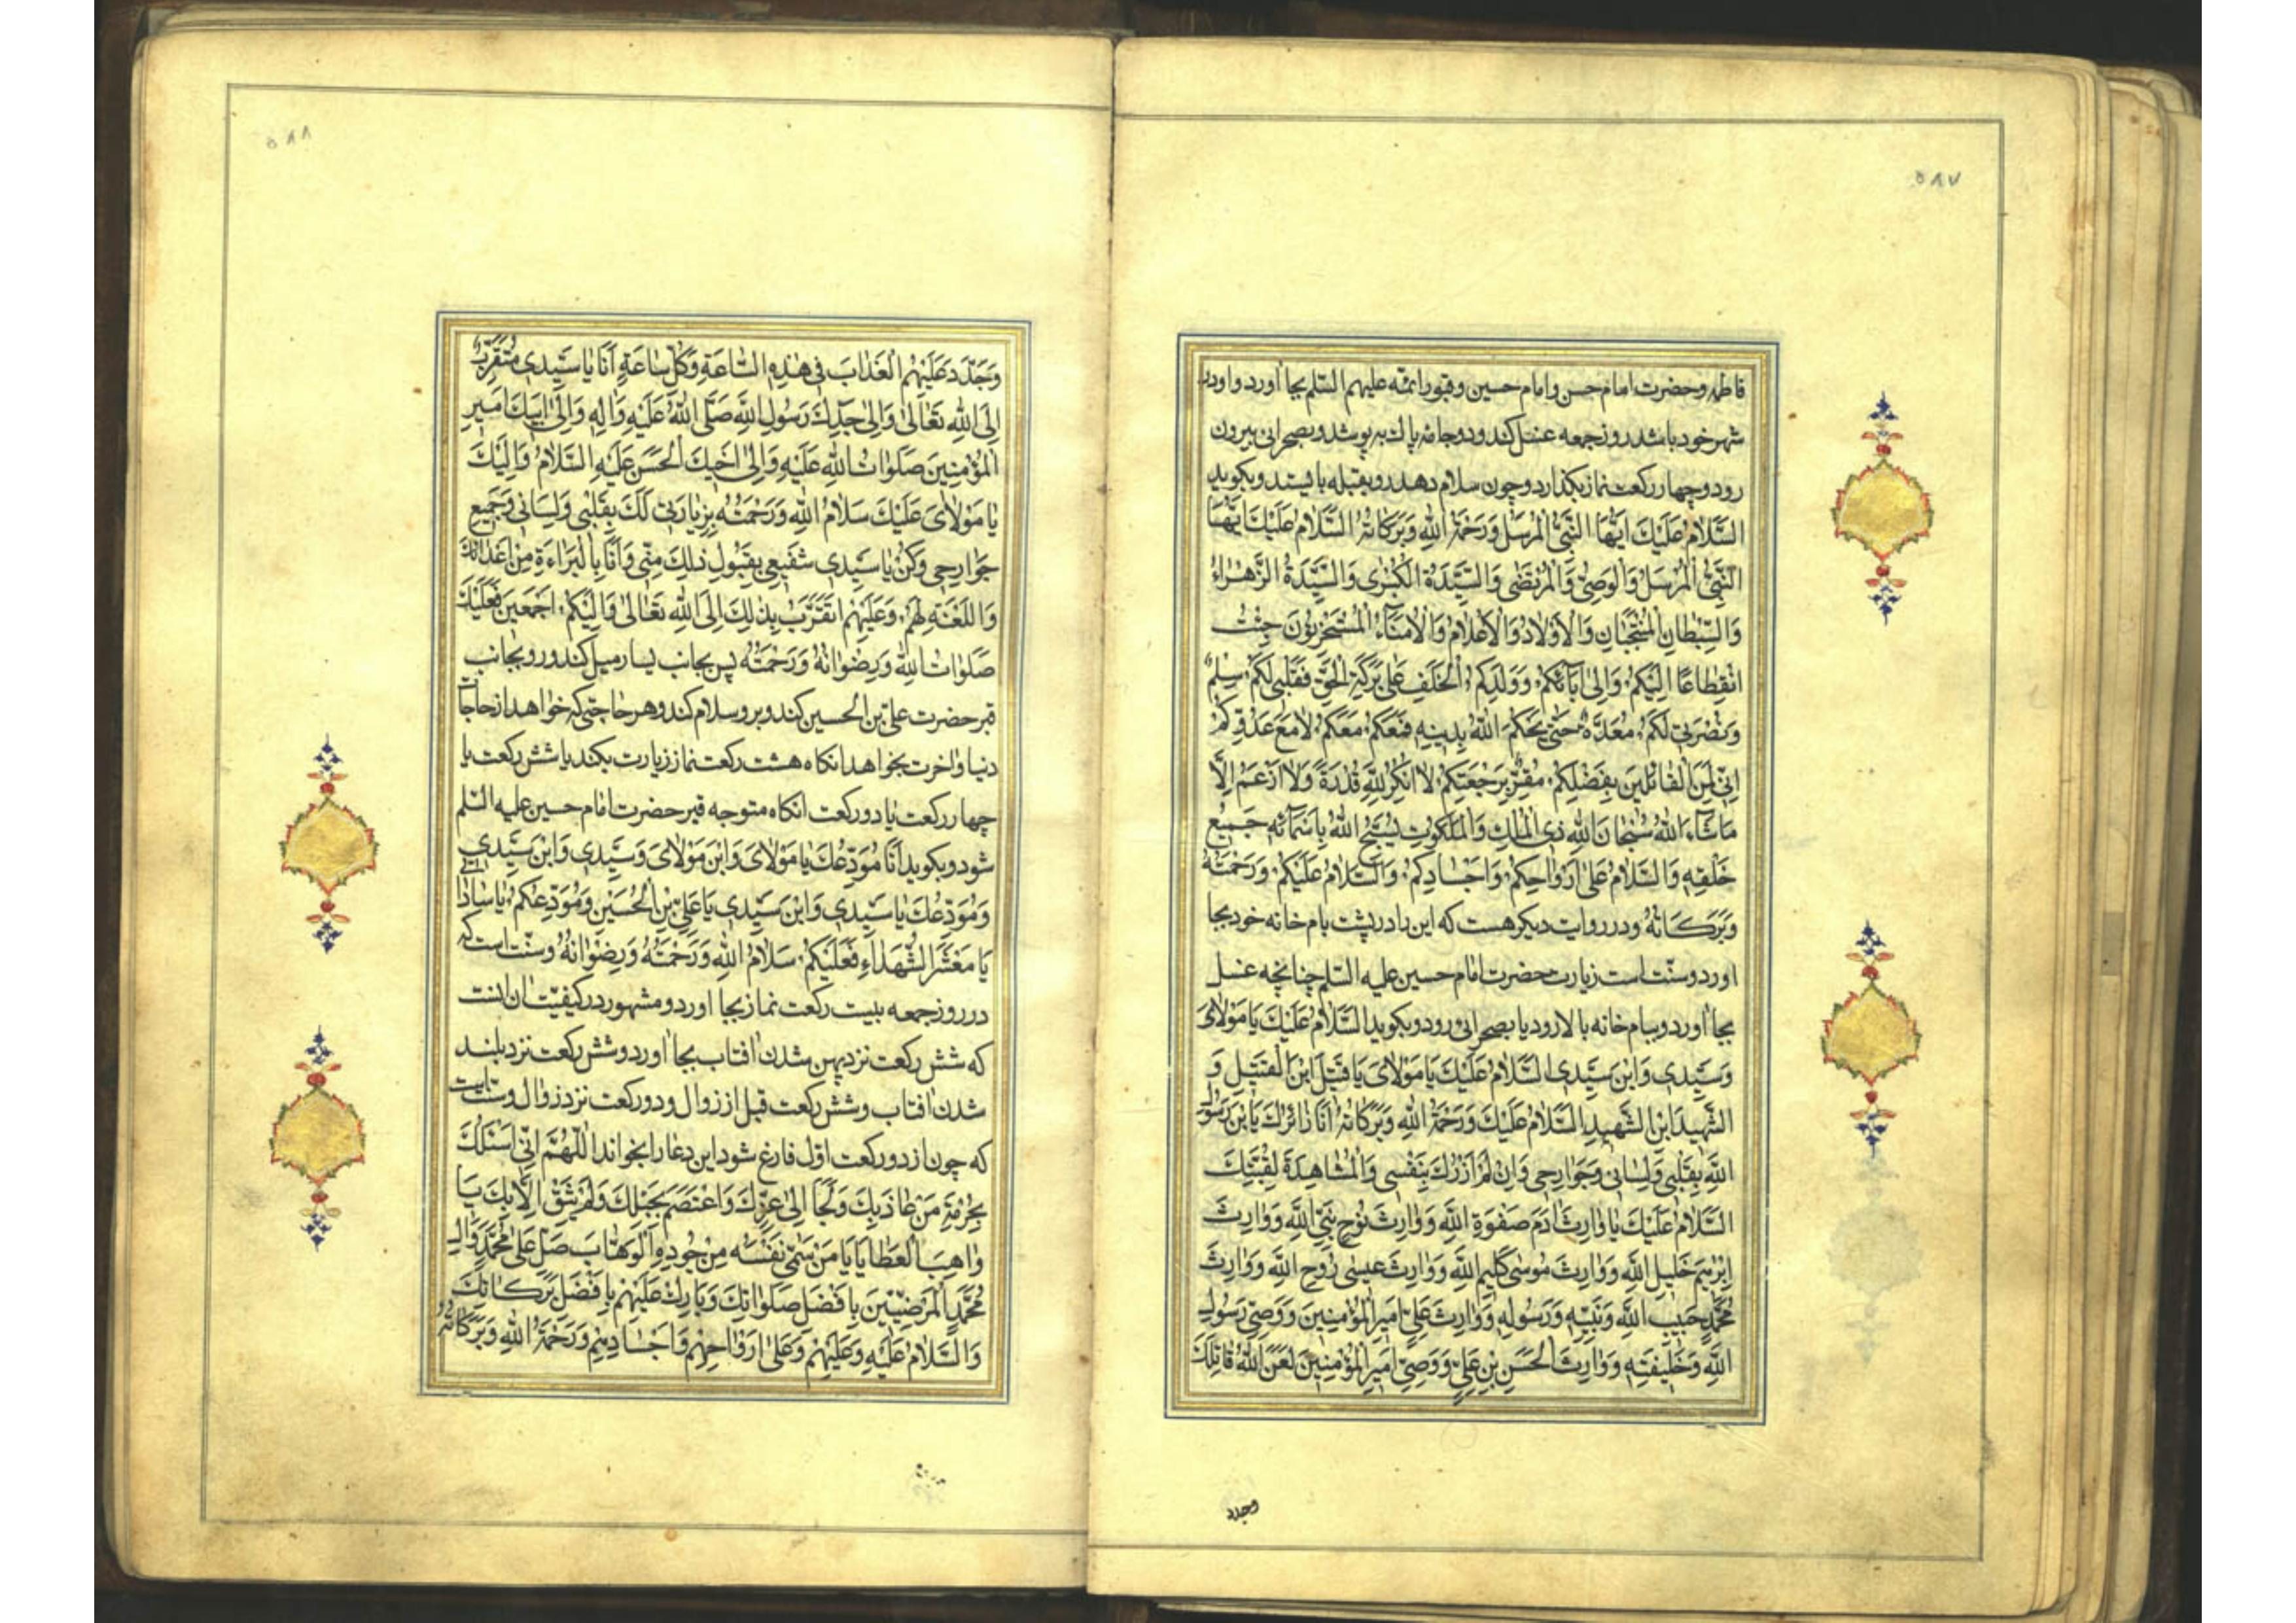 ۵۸۷
فاطمه و حضرت امام حسن و امام حسین و قبور ائمه علیهم السّلم بجا آورد و او در
شهر خود باشد روز جمعه غسل کند و دو جامهٔ پاک بپوشد و بصحرائی بیرون
رود و چهار رکعت نماز بگذارد و چون سلام دهد رو بقبله بایستد و بگوید
اَلسَّلامُ عَلَیْكَ اَیُّهَا النَّبِیُّ الْمُرْسَلُ وَرَحْمَةُ اللهِ وَبَرَكاتُهُ السَّلامُ عَلَیْكَ اَیُّهَا
النَّبِیُّ الْمُرْسَلُ وَالْوَصِیُّ وَالْمُرْتَضٰی وَالسَّیِّدَةُ الْكُبْرٰی وَالسَّیِّدَةُ الزَّهْراءُ
وَالسِّبْطانِ الْمُنْتَجَبانِ وَالْاَوْلادُ وَالْاَعْلامُ وَالْاُمَناءُ الْمُسْتَخْزِنُونَ جِئْتُ
انْقِطاعًا اِلَیْكُمْ وَاِلٰی آبائِكُمْ وَوَلَدِكُمُ الْخَلَفِ عَلٰی بَرَكَةِ الْحَقِّ فَقَلْبی لَكُمْ سِلْمٌ
وَنُصْرَتی لَكُمْ مُعَدَّةٌ حَتّٰی یَحْكُمَ اللهُ بِدینِهِ فَمَعَكُمْ مَعَكُمْ لا مَعَ عَدُوِّكُمْ
اِنّی لَمِنَ الْقائِلینَ بِفَضْلِكُمْ مُقِرٌّ بِرَجْعَتِكُمْ لا اُنْكِرُ لِلّٰهِ قُدْرَةً وَلا اَزْعَمُ اِلّا
ماشاءَ اللهُ سُبْحانَ اللهِ ذِی الْمُلْكِ وَالْمَلَكُوتِ یُسَبِّحُ اللهَ بِاَسْمائِهِ جَمیعُ
خَلْقِهِ وَالسَّلامُ عَلٰی اَرْواحِكُمْ وَاَجْسادِكُمْ وَالسَّلامُ عَلَیْكُمْ وَرَحْمَتُهُ
وَبَرَكاتُهُ و در روایت دیگر هست که این را در پشت بام خانه خود بجا
آورد و سنّت است زیارت حضرت امام حسین علیه السّلم چنانچه غسل
بجا آورد و ببام خانه بالا رود یا بصحرائی رود و بگوید اَلسَّلامُ عَلَیْكَ یا مَوْلایَ
وَسَیِّدی وَابْنَ سَیِّدی السَّلامُ عَلَیْكَ یا مَوْلایَ یا قَتیلَ ابْنَ الْقَتیلِ وَ
الشَّهیدَ ابْنَ الشَّهیدِ السَّلامُ عَلَیْكَ وَرَحْمَةُ اللهِ وَبَرَكاتُهُ اَنَا زائِرُكَ یَابْنَ رَسُولِ
اللهِ بِقَلْبی وَلِسانی وَجَوارِحی وَاِنْ لَمْ اَزُرْكَ بِنَفْسی وَالْمُشاهِدَةَ لِقُبَّتِكَ
السَّلامُ عَلَیْكَ یا وارِثَ اٰدَمَ صَفْوَةِ اللهِ وَوارِثَ نُوحٍ نَبِیِّ اللهِ وَوارِثَ
اِبْرٰهیمَ خَلیلِ اللهِ وَوارِثَ مُوسٰی كَلیمِ اللهِ وَوارِثَ عیسٰی رُوحِ اللهِ وَوارِثَ
مُحَمَّدٍ حَبیبِ اللهِ وَنَبِیِّهِ وَرَسُولِهِ وَوارِثَ عَلِیٍّ اَمیرِ الْمُؤْمِنینَ وَوَصِیِّ رَسُولِ
اللهِ وَخَلیفَتِهِ وَوارِثَ الْحَسَنِ بْنِ عَلِیٍّ وَوَصِیِّ اَمیرِ الْمُؤْمِنینَ لَعَنَ اللهُ قاتِلَكَ
وجدد
۵۸۸
وَجَدَّدَ عَلَیْهِمُ الْعَذابَ فی هٰذِهِ السّاعَةِ وَكُلِّ ساعَةٍ اَنَا یا سَیِّدی مُتَقَرِّبٌ
اِلَی اللهِ تَعالٰی وَاِلٰی جَدِّكَ رَسُولِ اللهِ صَلَّی اللهُ عَلَیْهِ وَاٰلِهِ وَاِلٰی اَبیكَ اَمیرِ
الْمُؤْمِنینَ صَلَواتُ اللهِ عَلَیْهِ وَاِلٰی اَخیكَ الْحَسَنِ عَلَیْهِ السَّلامُ وَاِلَیْكَ
یا مَوْلایَ عَلَیْكَ سَلامُ اللهِ وَرَحْمَتُهُ بِزِیارَتی لَكَ بِقَلْبی وَلِسانی وَجَمیعِ
جَوارِحی وَكُنْ یا سَیِّدی شَفیعی بِقَبُولِ ذٰلِكَ مِنّی وَاَنَا بِالْبَراءَةِ مِنْ اَعْدائِكَ
وَاللَّعْنَةِ لَهُمْ وَعَلَیْهِمْ اَتَقَرَّبُ بِذٰلِكَ اِلَی اللهِ تَعالٰی وَاِلَیْكُمْ اَجْمَعینَ فَعَلَیْكَ
صَلَواتُ اللهِ وَرِضْوانُهُ وَرَحْمَتُهُ پس بجانب یسار میل کند و رو بجانب
قبر حضرت علیّ بن الحسین کند و برو سلام کند و هر حاجتی که خواهد از حاجات
دنیا و آخرت بخواهد انکاه هشت رکعت نماز زیارت بکند یا شش رکعت یا
چهار رکعت یا دو رکعت انکاه متوجه قبر حضرت امام حسین علیه السّلم
شود و بکوید اَنَا مُوَدِّعُكَ یا مَوْلایَ وَابْنَ مَوْلایَ وَسَیِّدی وَابْنَ سَیِّدی
وَمُوَدِّعُكَ یا سَیِّدی وَابْنَ سَیِّدی یا عَلِیَّ بْنَ الْحُسَیْنِ وَمُوَدِّعُكُمْ یا ساداتی
یا مَعْشَرَ الشُّهَداءِ فَعَلَیْكُمْ سَلامُ اللهِ وَرَحْمَتُهُ وَرِضْوانُهُ و سنّت است که
در روز جمعه بیست رکعت نماز بجا آورد و مشهور در کیفیّت آن اینست
که شش رکعت نزد پهن شدن آفتاب بجا آورد و شش رکعت نزد بلند
شدن آفتاب و شش رکعت قبل از زوال و دو رکعت نزد زوال و سنّت است
که چون از دو رکعت اوّل فارغ شود این دعا را بخواند اَللّٰهُمَّ اِنّی اَسْئَلُكَ
بِحُرْمَةِ مَنْ عاذَ بِكَ وَلَجَأَ اِلٰی عِزِّكَ وَاعْتَصَمَ بِحَبْلِكَ وَلَمْ یَثِقْ اِلّا بِكَ یا
واهِبَ الْعَطایا یا مَنْ سَمّٰی نَفْسَهُ مِنْ جُودِهِ الْوَهّابَ صَلِّ عَلٰی مُحَمَّدٍ وَاٰلِ
مُحَمَّدٍ الْمَرْضِیّینَ بِاَفْضَلِ صَلَواتِكَ وَبارِكْ عَلَیْهِمْ بِاَفْضَلِ بَرَكاتِكَ
وَالسَّلامُ عَلَیْهِ وَعَلَیْهِمْ وَعَلٰی اَرْواحِهِمْ وَاَجْسادِهِمْ وَرَحْمَةُ اللهِ وَبَرَكاتُهُ